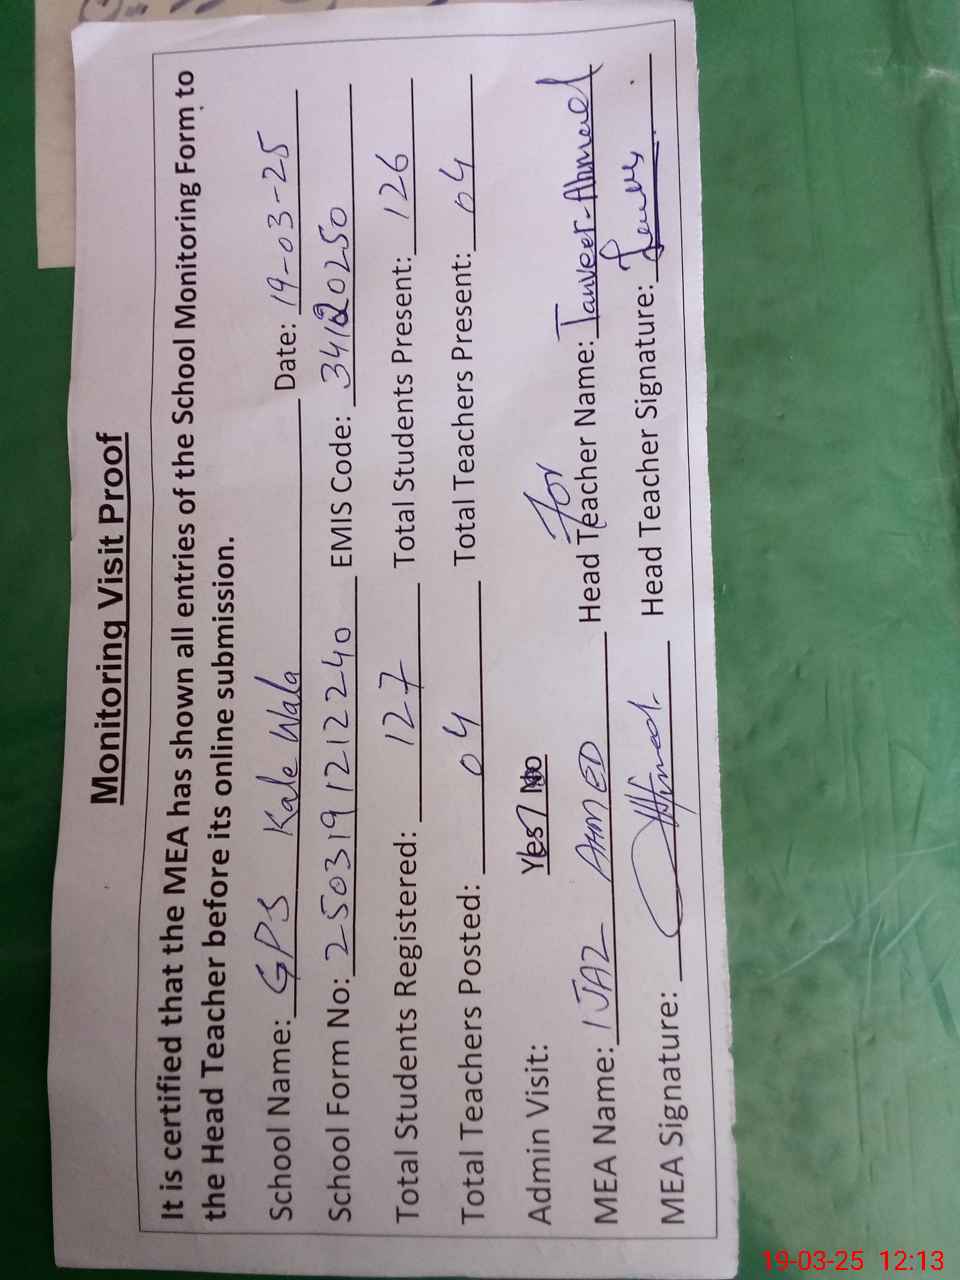 Monitoring Visit Proof
It is certified that the MEA has shown all entries of the School Monitoring Form to
the Head Teacher before its online submission.
School Name: GPS Kale Wala Date: 19-03-25
School Form No: 2503191212240 EMIS Code: 34120250
Total Students Registered: 127 Total Students Present: 126
Total Teachers Posted: 04 Total Teachers Present: 04
Admin Visit: Yes/ No
For
MEA Name: IJAZ AHMED Head Teacher Name: Tanveer-Ahmad
MEA Signature: Head Teacher Signature:
19-03-25 12:13